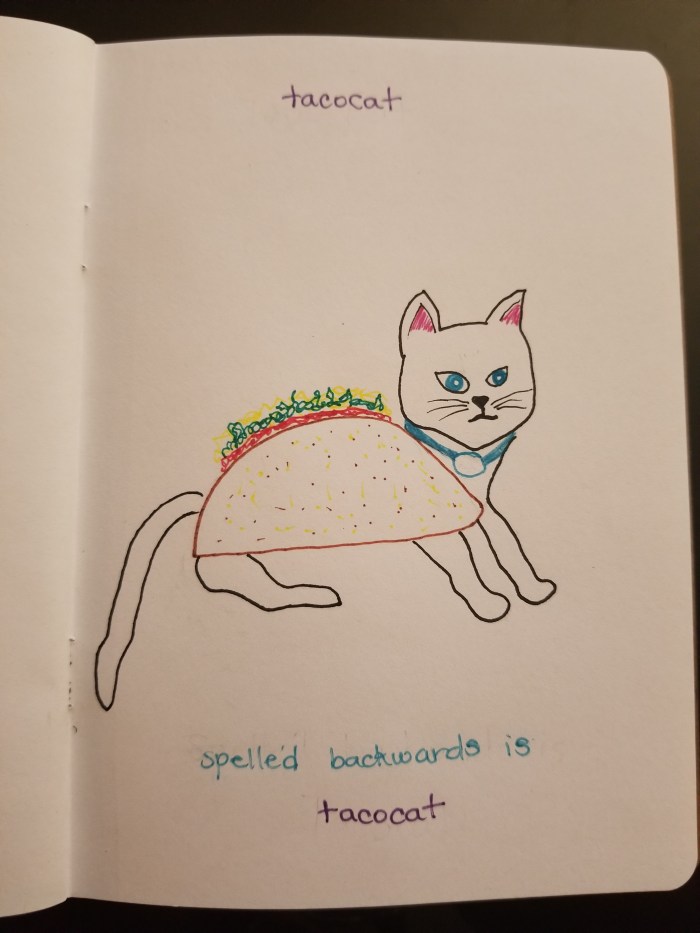 tacocat
spelled backwards is
tacocat